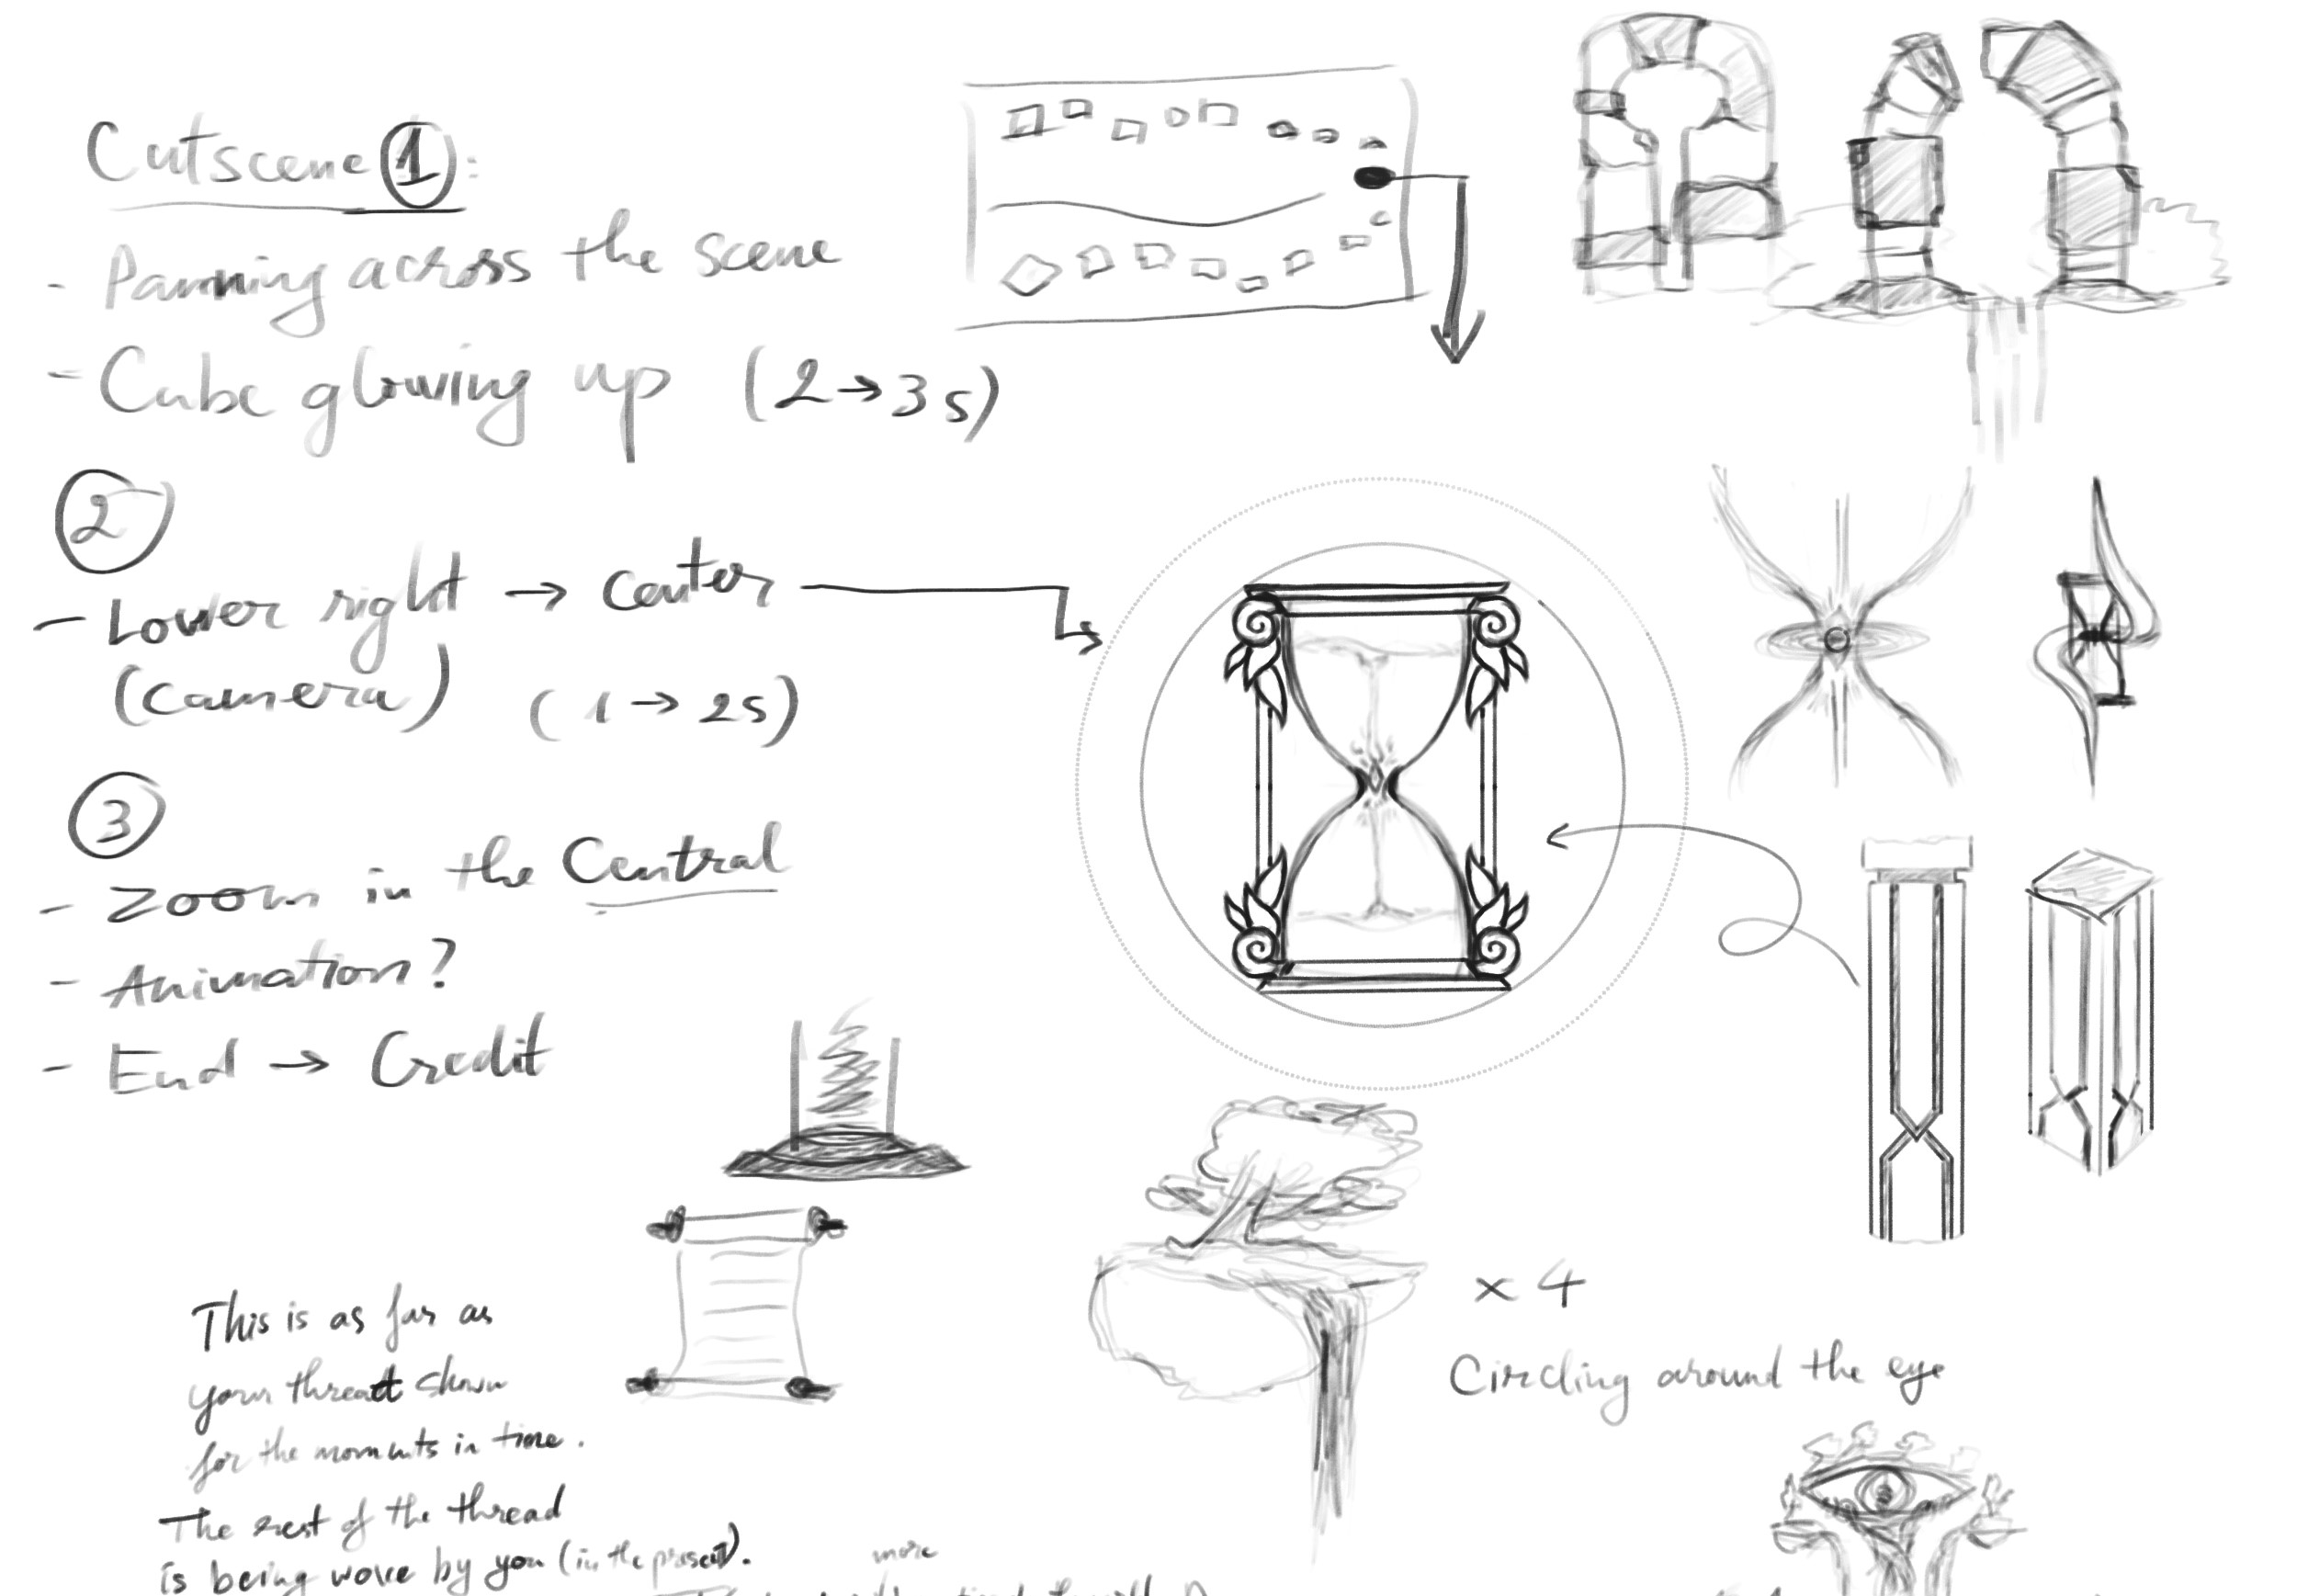 Cutscene 1:
- Panning across the scene
- Cube glowing up (2→3s)
2
- Lower right → center
(camera) (1→2s)
3
- Zoom in the Central
- Animation?
- End → Credit
This is as far as
your thread shown
for the moments in time.
The rest of the thread
is being wove by you (in the present).
more
x 4
Circling around the eye